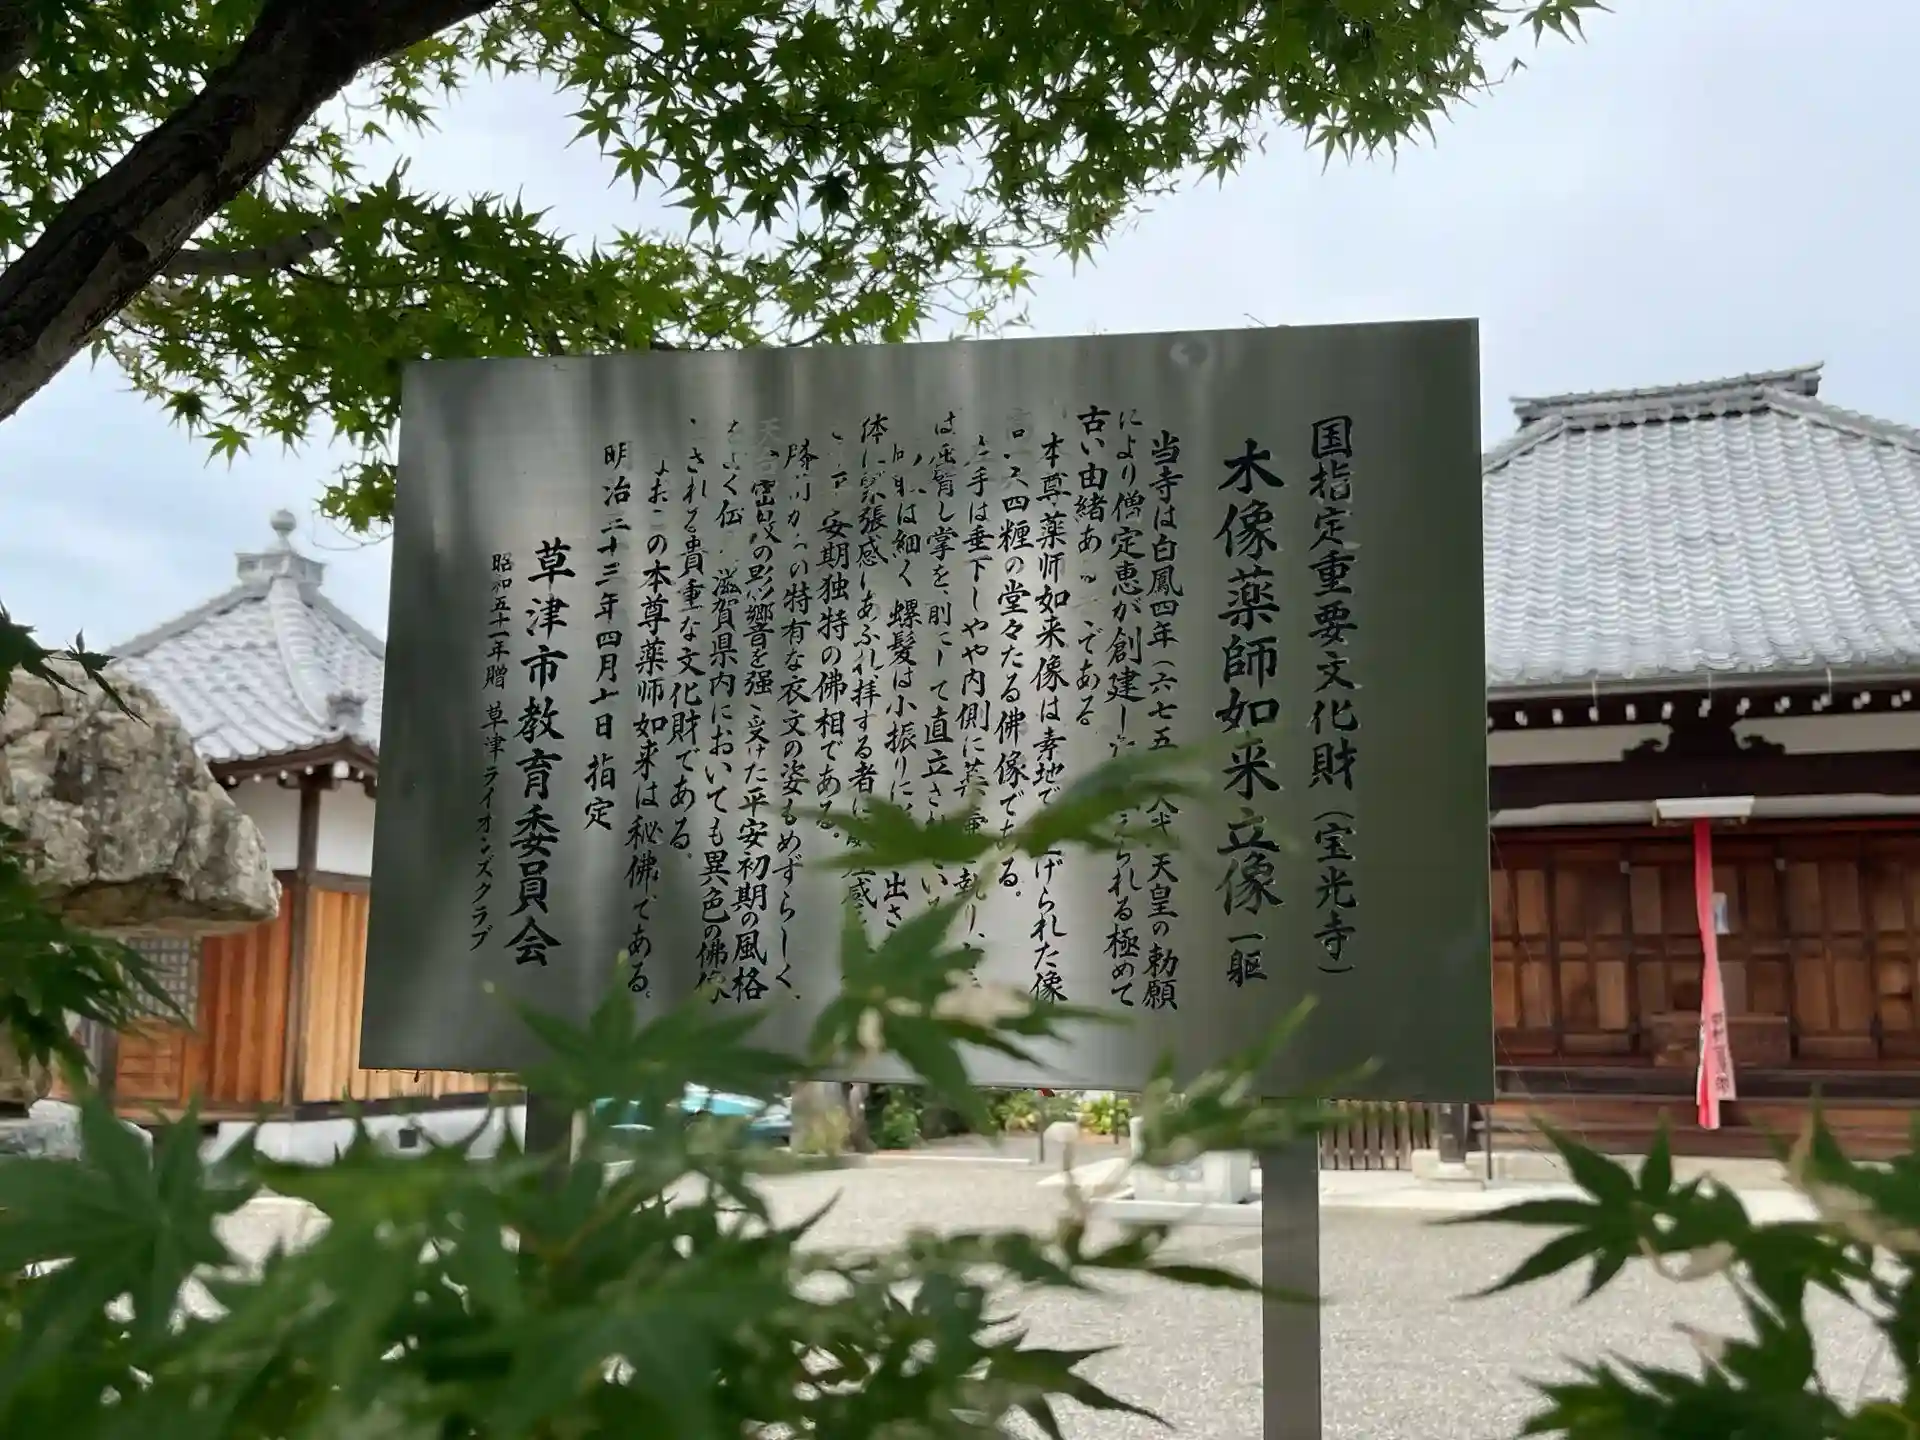 国指定重要文化財（宝光寺）
木像薬師如来立像 一躯
当寺は白鳳四年（六七五 天皇の勅願
により僧定恵が創建し えられる極めて
古い由緒あ である
本尊薬師如来像は素地で げられた像
四糎の堂々たる佛像である。
手は垂下しやや内側に 執り、
は 臂し掌を、前にして直立され
は細く 螺髪は小振りに 出さ
体に緊張感しあふれ拝する者に
安期独特の佛相である。
の特有な衣文の姿もめずらしく、
天台密教の影響を強 受けた平安初期の風格
よく伝 滋賀県内においても異色の佛像
される貴重な文化財である。
なおこの本尊薬師如来は秘佛である。
明治三十三年四月七日 指定
草津市教育委員会
昭和五十一年贈 草津ライオンズクラブ